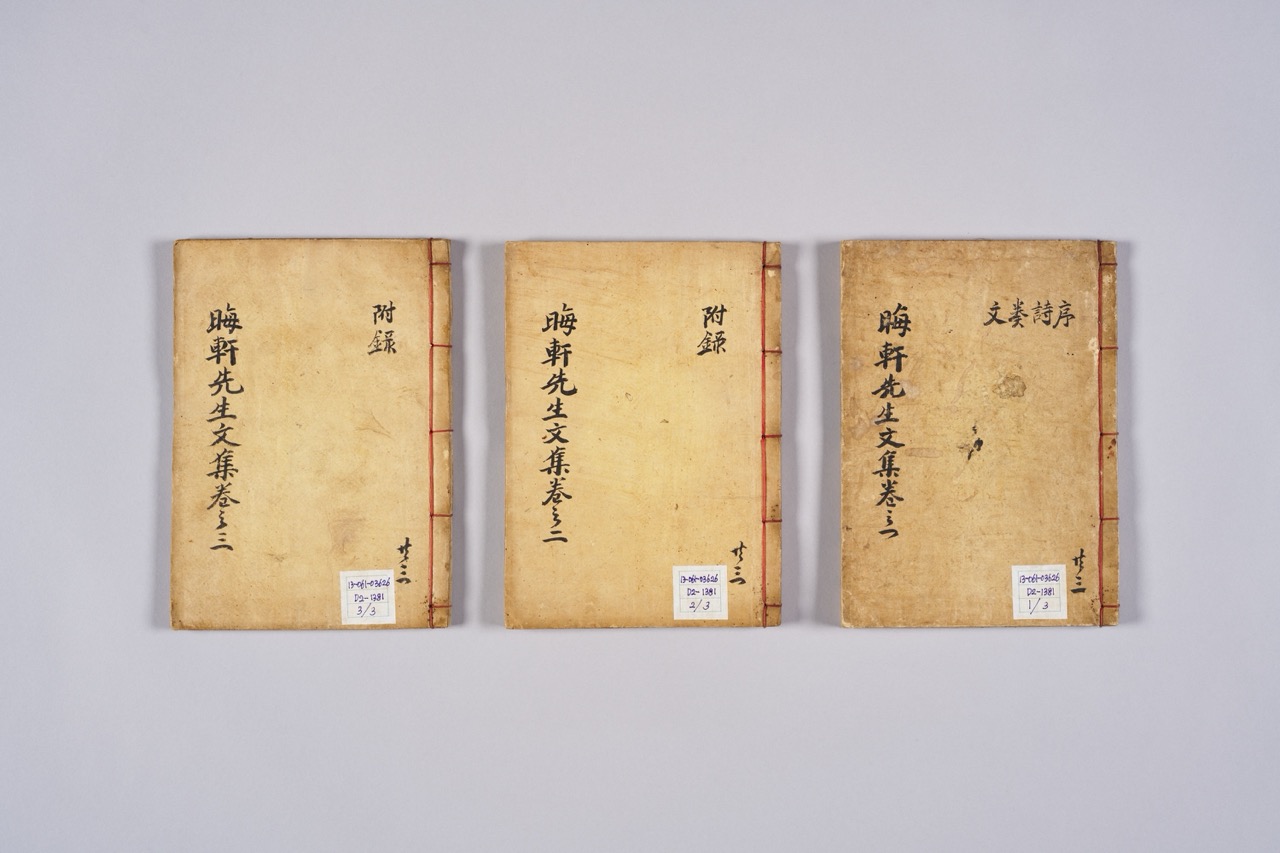 序
詩
类
文
晦軒先生文集卷之一
共三
13-061-03626
D2-1381
1/3
附錄
晦軒先生文集卷之二
共三
13-061-03626
D2-1381
2/3
附錄
晦軒先生文集卷之三
共三
13-061-03626
D2-1381
3/3